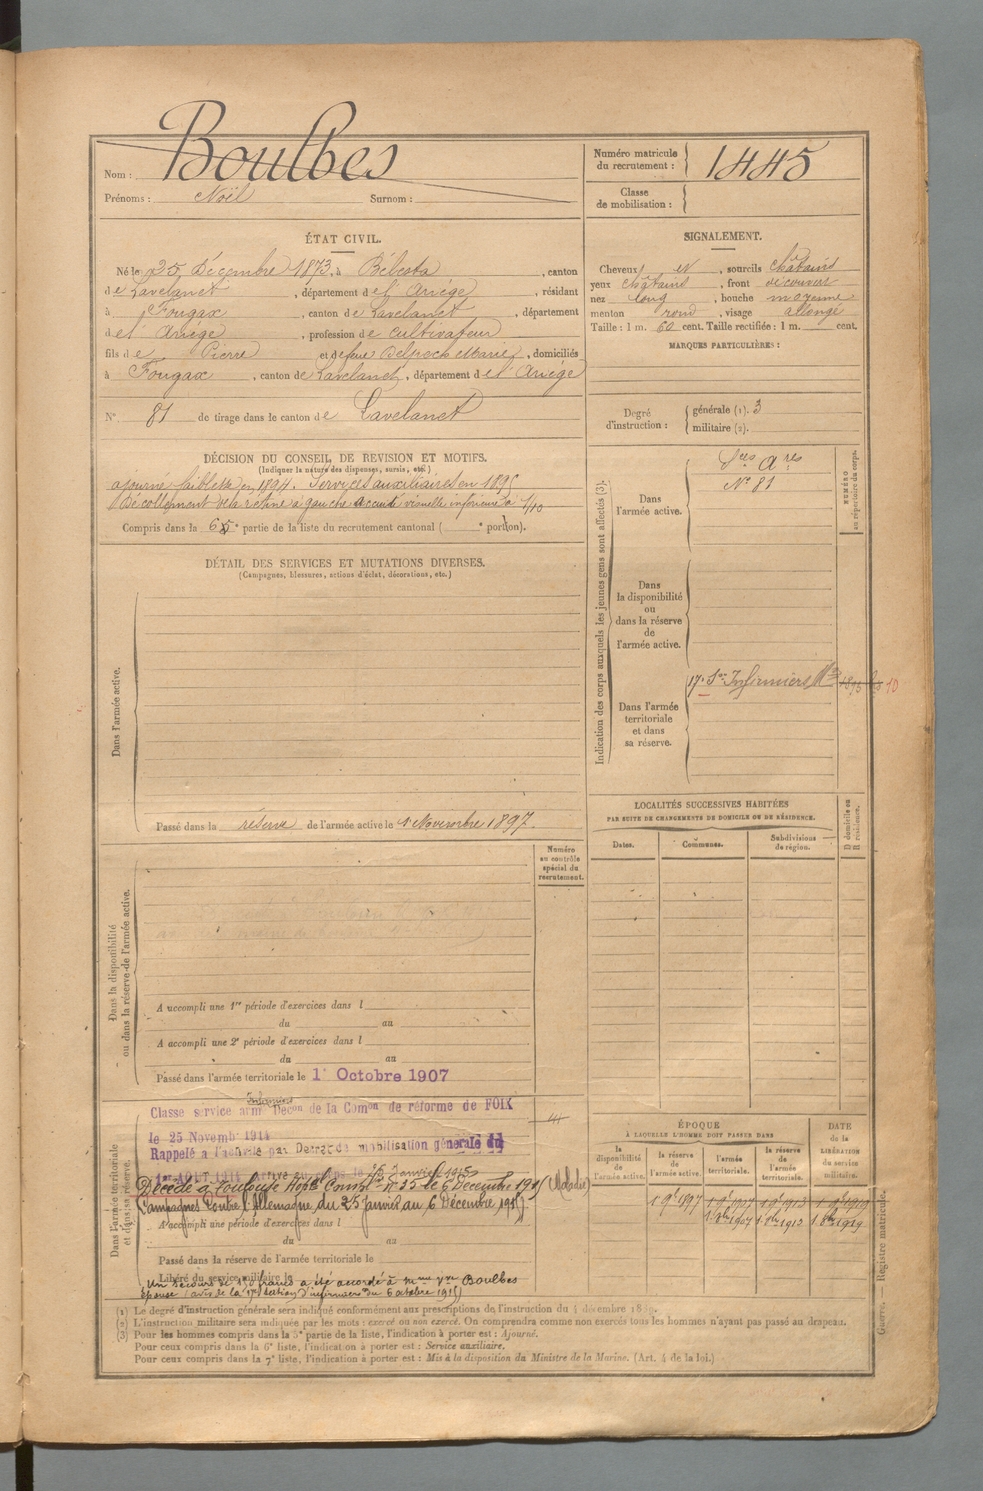 Nom : Boulbes
Prénoms : Noël Surnom :
Numéro matricule du recrutement : 1445
Classe de mobilisation :
ÉTAT CIVIL.
Né le 25 Décembre 1873, à Bélesta, canton
de Lavelanet, département de l'Ariège, résidant
à Fougax, canton de Lavelanet, département
de l'Ariège, profession de cultivateur
fils de Pierre et de feue Delpech Marie, domiciliés
à Fougax, canton de Lavelanet, département de l'Ariège
N° 81 de tirage dans le canton de Lavelanet
SIGNALEMENT.
Cheveux et, sourcils châtains
yeux châtains, front découvert
nez long, bouche moyenne
menton rond, visage allongé
Taille : 1 m. 60 cent. Taille rectifiée : 1 m. cent.
MARQUES PARTICULIÈRES :
Degré d'instruction : générale (1). 3
militaire (2).
DÉCISION DU CONSEIL DE REVISION ET MOTIFS.
(Indiquer la nature des dispenses, sursis, etc.)
ajourné faiblesse en 1894. Services auxiliaires en 1895
Décollement de la rétine à gauche acuité visuelle inférieure à 1/10
Compris dans la 6e partie de la liste du recrutement cantonal ( e portion).
DÉTAIL DES SERVICES ET MUTATIONS DIVERSES.
(Campagnes, blessures, actions d'éclat, décorations, etc.)
Dans l'armée active.
Passé dans la réserve de l'armée active le 1 Novembre 1897.
Indication des corps auxquels les jeunes gens sont affectés (3).
Dans l'armée active.
Sces Ares
N° 81
NUMÉRO au répertoire du corps.
Dans la disponibilité ou dans la réserve de l'armée active.
Dans l'armée territoriale et dans sa réserve.
17e Son Infirmiers Mres
10
LOCALITÉS SUCCESSIVES HABITÉES
PAR SUITE DE CHANGEMENTS DE DOMICILE OU DE RÉSIDENCE.
Dates. Communes. Subdivisions de région.
D domicile ou R résidence.
Numéro au contrôle spécial du recrutement.
Dans la disponibilité ou dans la réserve de l'armée active.
A accompli une 1re période d'exercices dans l
du au
A accompli une 2e période d'exercices dans l
du au
Passé dans l'armée territoriale le 1er Octobre 1907
Dans l'armée territoriale et dans sa réserve.
Classe service armé Décon de la Comon de réforme de FOIX
le 25 Novembre 1914
Rappelé à l'activité par Décret de mobilisation générale du
1er AOUT 1914 arrivé au corps le 25 Janvier 1915
Décédé à Toulouse Hopal Compre N° 35 le 6 Décembre 1915 (Maladie)
Campagnes Contre l'Allemagne du 25 Janvier au 6 Décembre 1915.
A accompli une période d'exercices dans l
du au
Passé dans la réserve de l'armée territoriale le
Libéré du service militaire le
Un secours de 150 francs a été accordé à Mme Vve Boulbes
épouse (avis de la 17e Section d'infirmiers du 6 octobre 1915)
ÉPOQUE
À LAQUELLE L'HOMME DOIT PASSER DANS
la disponibilité de l'armée active. la réserve de l'armée active. l'armée territoriale. la réserve de l'armée territoriale.
DATE de la LIBÉRATION du service militaire.
1 9e 1897 1 9e 1907 1 9e 1913 1 9e 1919
1 8bre 1907 1 8bre 1913 1 8bre 1919
Registre matricule.
Guerre.
(1) Le degré d'instruction générale sera indiqué conformément aux prescriptions de l'instruction du 4 décembre 1889.
(2) L'instruction militaire sera indiquée par les mots : exercé ou non exercé. On comprendra comme non exercés tous les hommes n'ayant pas passé au drapeau.
(3) Pour les hommes compris dans la 5e partie de la liste, l'indication à porter est : Ajourné.
Pour ceux compris dans la 6e liste, l'indication à porter est : Service auxiliaire.
Pour ceux compris dans la 7e liste, l'indication à porter est : Mis à la disposition du Ministre de la Marine. (Art. 4 de la loi.)